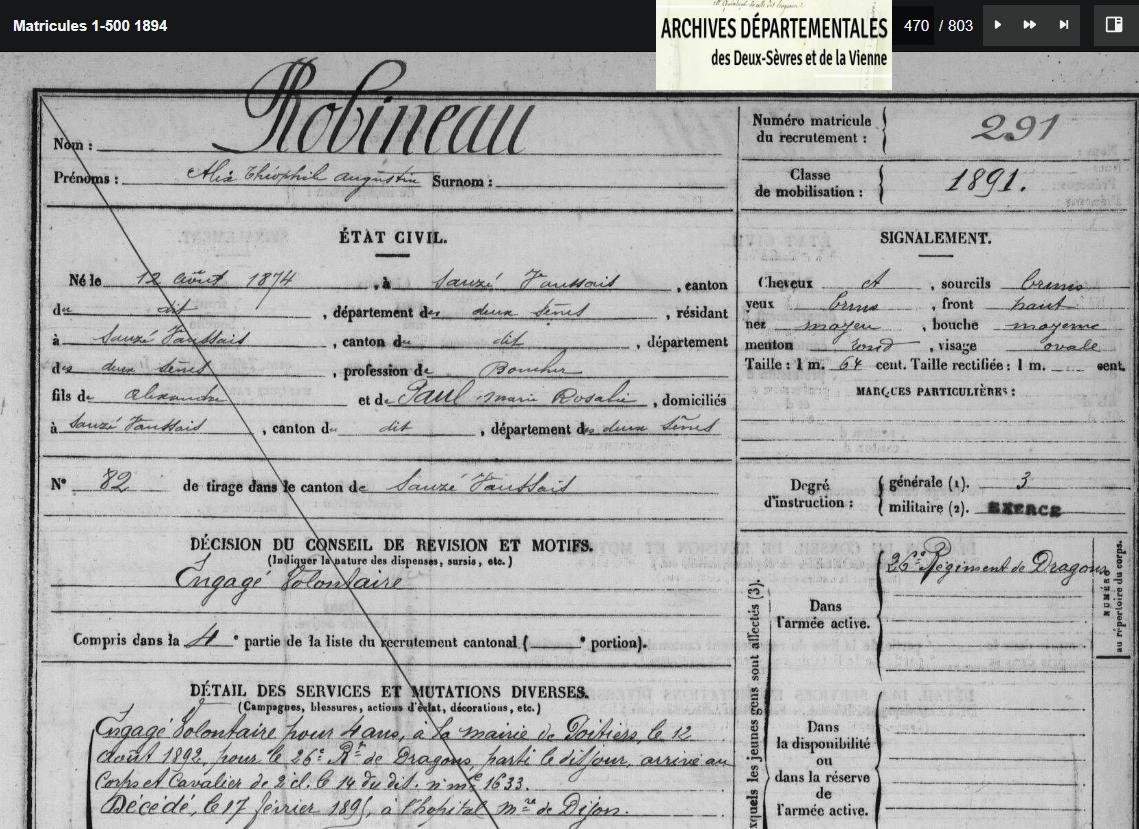 Matricules 1-500 1894
ARCHIVES DÉPARTEMENTALES
des Deux-Sèvres et de la Vienne
470 / 803
Nom : Robineau
Prénoms : Alix Théophil Augustin Surnom :
Numéro matricule du recrutement : 291
Classe de mobilisation : 1891.
ÉTAT CIVIL.
Né le 12 août 1874, à Sauzé Vaussais, canton
du dit, département des deux Sèvres, résidant
à Sauzé Vaussais, canton du dit, département
des deux Sèvres, profession de Boucher
fils de Alexandre et de Paul Marie Rosalie, domiciliés
à Sauzé Vaussais, canton du dit, département des deux Sèvres
N° 82 de tirage dans le canton de Sauzé Vaussais
SIGNALEMENT.
Cheveux et, sourcils bruns
yeux bruns, front haut
nez moyen, bouche moyenne
menton rond, visage ovale
Taille : 1 m. 64 cent. Taille rectifiée : 1 m. cent.
MARQUES PARTICULIÈRES :
Degré d'instruction : générale (1). 3
militaire (2). EXERCÉ
DÉCISION DU CONSEIL DE REVISION ET MOTIFS.
(Indiquer la nature des dispenses, sursis, etc.)
Engagé Volontaire
Compris dans la 4e partie de la liste du recrutement cantonal ( e portion).
DÉTAIL DES SERVICES ET MUTATIONS DIVERSES.
(Campagnes, blessures, actions d'éclat, décorations, etc.)
Engagé Volontaire pour 4 ans, à la mairie de Poitiers, le 12
Août 1892, pour le 26e Rt de Dragons, parti le dit jour, arrivé au
Corps et Cavalier de 2e cl. le 14 du dit. n° mle 1633.
Décédé, le 17 février 1895, à l'hôpital mre de Dijon.
xquels les jeunes gens sont affectés (3).
Dans l'armée active.
26e Régiment de Dragons
NUMÉRO
au répertoire du corps.
Dans
la disponibilité
ou
dans la réserve
de
l'armée active.